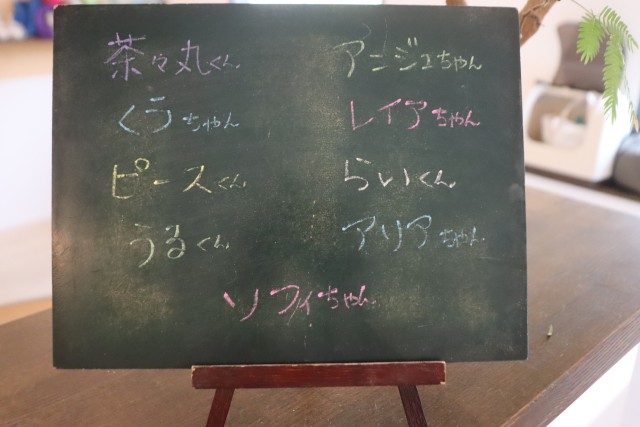 茶々丸くん
アンジュちゃん
くうちゃん
レイアちゃん
ピースくん
らいくん
うるくん
アリアちゃん
ソフィちゃん